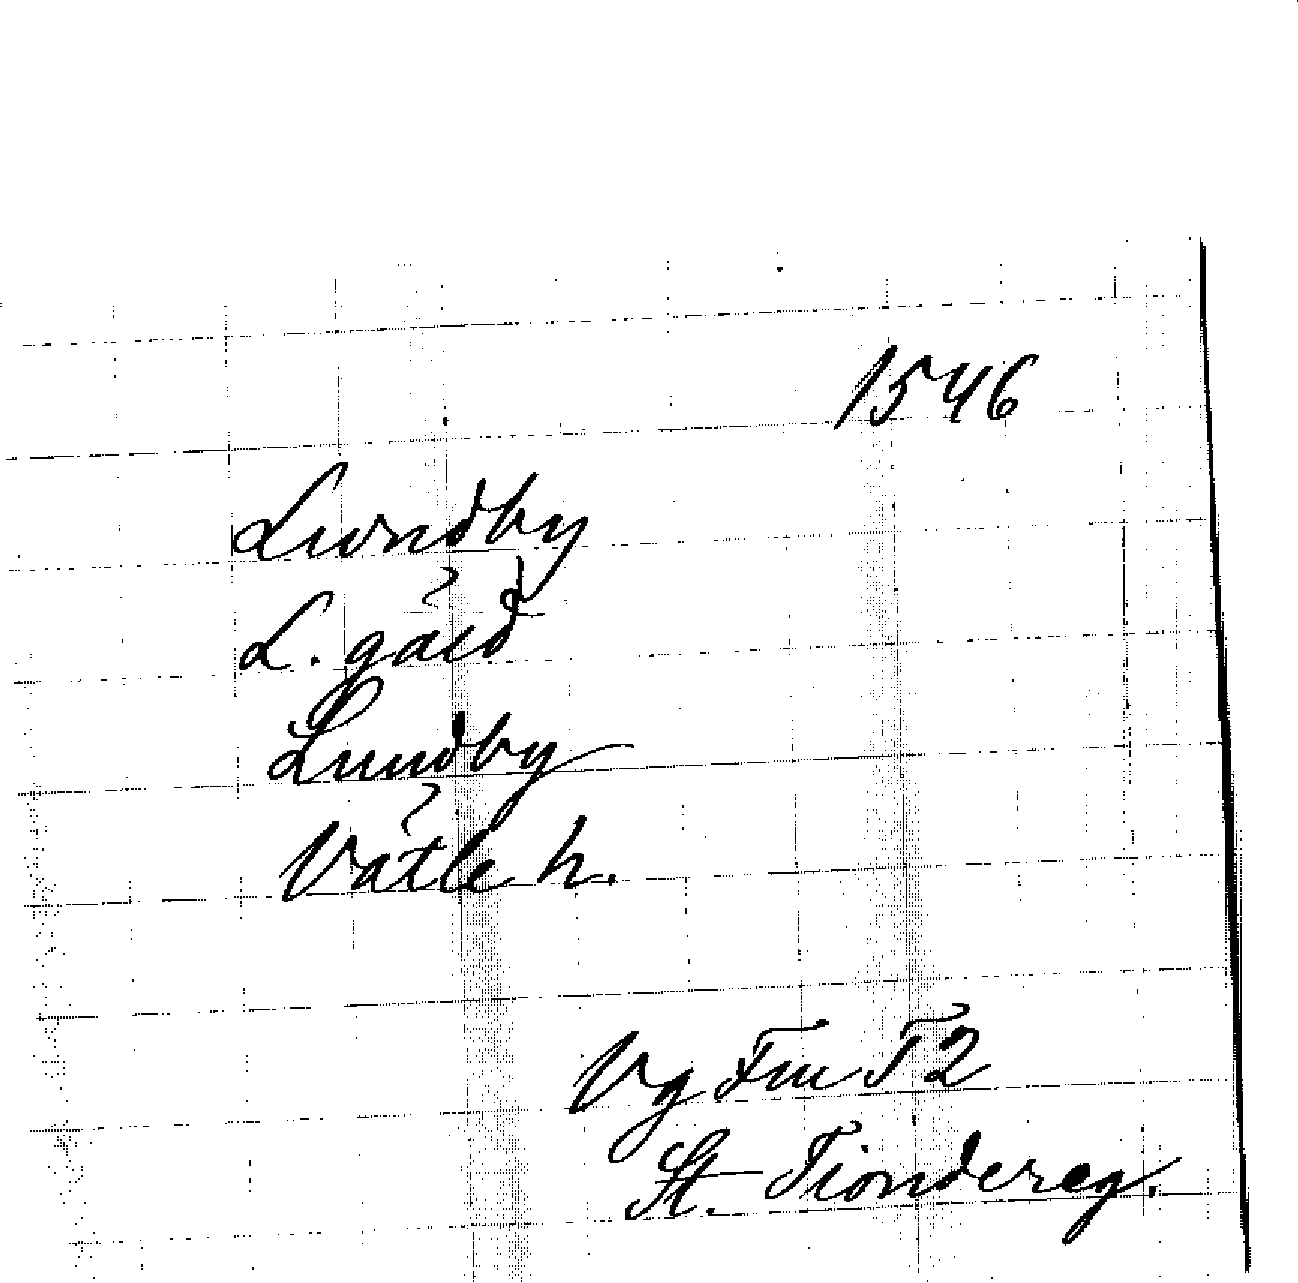 1546
Lundby
L. gård
Lundby
Vätle h.
Vg Fm T2
St. Tiondereg.